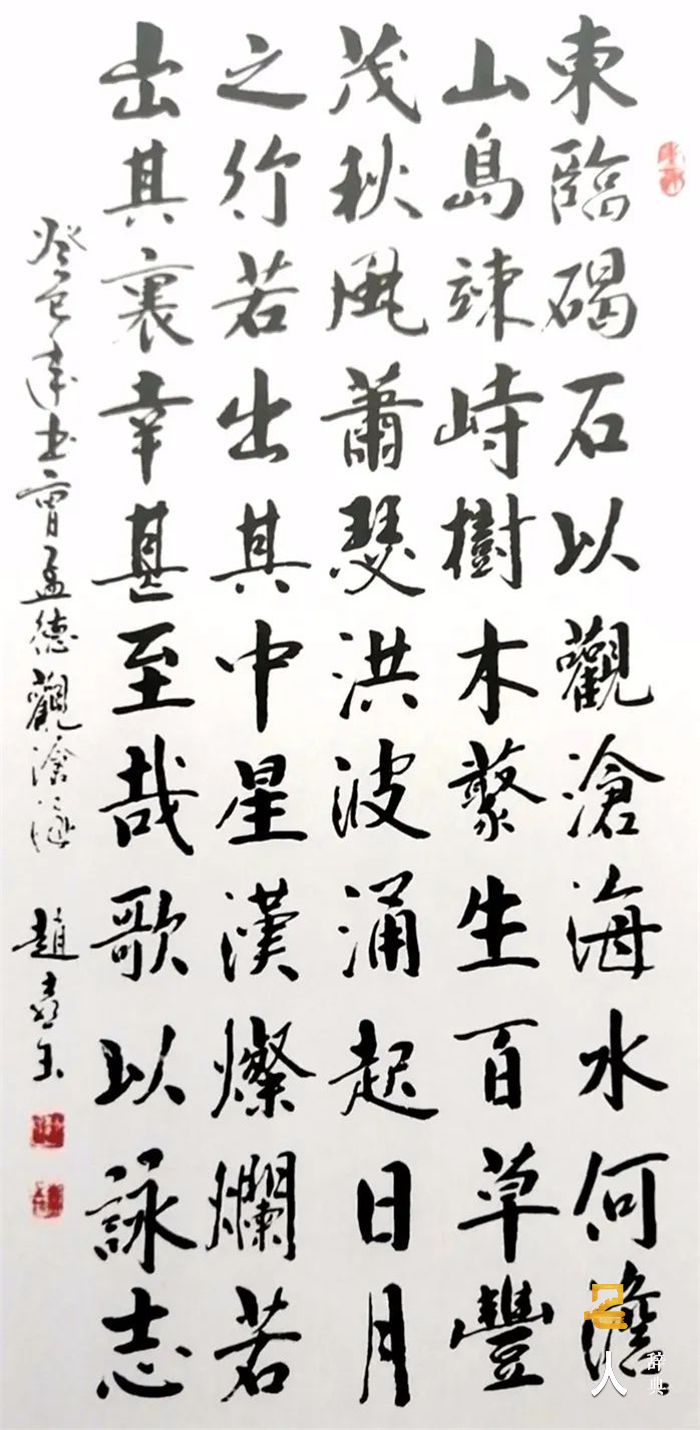 東臨碣石以觀滄海水何澹
山島竦峙樹木藂生百草豐
茂秋風蕭瑟洪波涌起日月
之行若出其中星漢燦爛若
出其裏幸甚至哉歌以詠志
癸巳年书曹孟德觀滄海 趙玉
人
辞典